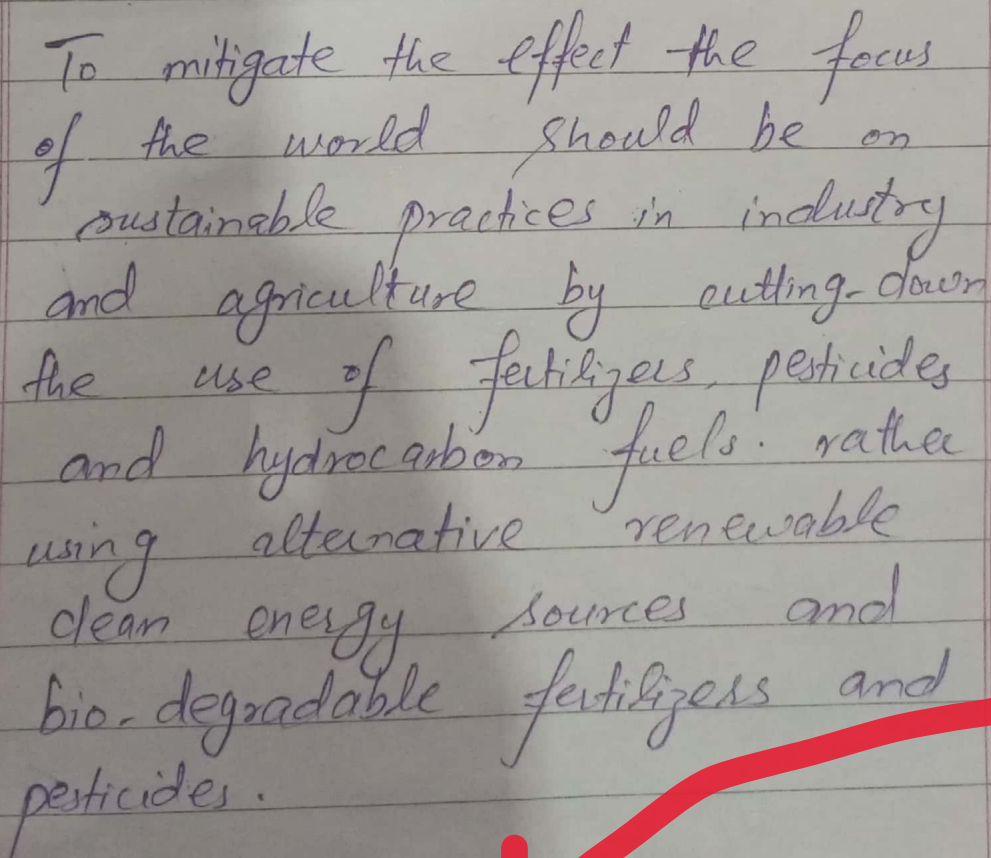 To mitigate the effect the focus
of the world should be on
sustainable practices in industry
and agriculture by cutting-down
the use of fertilizers, pesticides
and hydrocarbon fuels. rather
using alternative renewable
clean energy sources and
bio-degradable fertilizers and
pesticides.